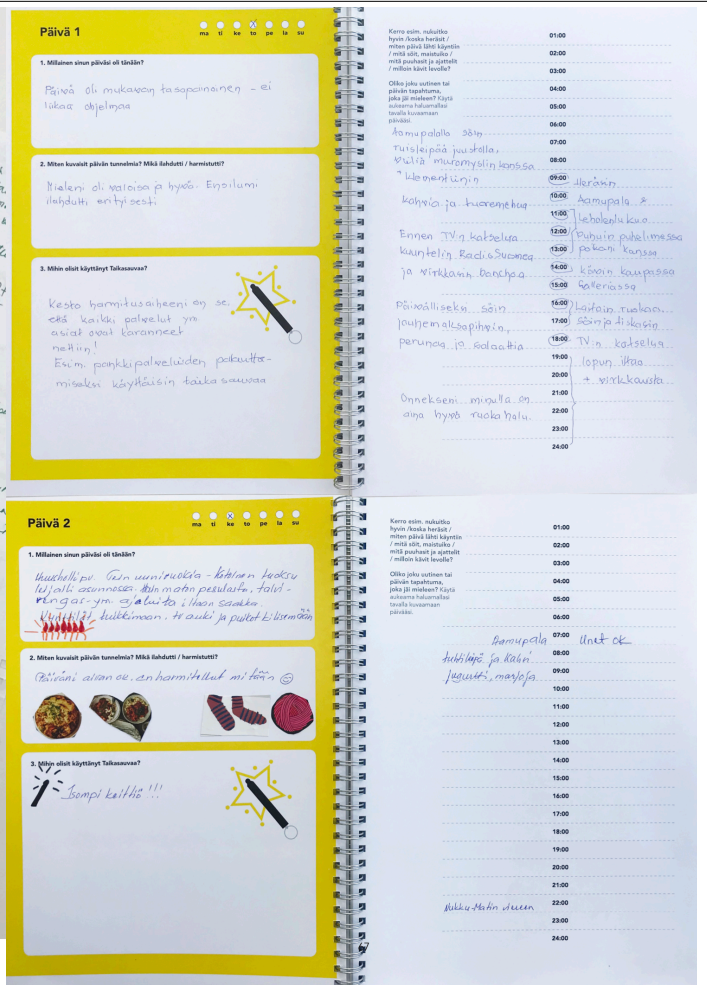 Päivä 1
ma ti ke to pe la su
1. Millainen sinun päiväsi oli tänään?
Päivä oli mukavan tasapainoinen - ei
liikaa ohjelmaa
2. Miten kuvaisit päivän tunnelmia? Mikä ilahdutti / harmistutti?
Mieleni oli valoisa ja hyvä. Ensilumi
ilahdutti erityisesti
3. Mihin olisit käyttänyt Taikasauvaa?
Kesto harmitusaiheeni on se,
että kaikki palvelut ym.
asiat ovat karanneet
nettiin!
Esim. pankkipalveluiden palautta-
miseksi käyttäisin taikasauvaa
Kerro esim. nukuitko
hyvin /koska heräsit /
miten päivä lähti käyntiin
/ mitä söit, maistuiko /
mitä puuhasit ja ajattelit
/ milloin kävit levolle?
Oliko joku uutinen tai
päivän tapahtuma,
joka jäi mieleen? Käytä
aukeama haluamallasi
tavalla kuvaamaan
päivääsi.
Aamupalalla söin
ruisleipää juustolla,
viiliä muromyslin kanssa
+ klementiinin
kahvia ja tuoremehua
Ennen TV:n katselua
kuuntelin Radio Suomea
ja virkkasin
Päivälliseksi söin
jauhemaksapihvin,
perunaa ja salaattia
Onnekseni minulla on
aina hyvä ruokahalu.
01:00
02:00
03:00
04:00
05:00
06:00
07:00
08:00
09:00 Heräsin
10:00 Aamupala &
11:00 Lehdenlukua
12:00 Puhuin puhelimessa
13:00 kanssa
14:00 kävin kaupassa
15:00
16:00 Laitoin ruokaa
17:00 söin ja tiskasin
18:00 TV:n katselua
19:00 lopun iltaa
20:00 + virkkausta
21:00
22:00
23:00
24:00
Päivä 2
ma ti ke to pe la su
1. Millainen sinun päiväsi oli tänään?
Tein uuniruokia - Kotoinen tuoksu
leijaili asunnossa. Hain maton pesulasta, talvi-
rengas- ym. ajeluita iltaan saakka.
Kynttilät tuikkimaan, tv auki ja puikot kilisemään
2. Miten kuvaisit päivän tunnelmia? Mikä ilahdutti / harmistutti?
Päiväni aivan ok, en harmitellut mitään
3. Mihin olisit käyttänyt Taikasauvaa?
Isompi keittiö !!!
Kerro esim. nukuitko
hyvin /koska heräsit /
miten päivä lähti käyntiin
/ mitä söit, maistuiko /
mitä puuhasit ja ajattelit
/ milloin kävit levolle?
Oliko joku uutinen tai
päivän tapahtuma,
joka jäi mieleen? Käytä
aukeama haluamallasi
tavalla kuvaamaan
päivääsi.
01:00
02:00
03:00
04:00
05:00
06:00
Aamupala 07:00 Unet ok
08:00
ja kahvi
jugurtti, marjoja 09:00
10:00
11:00
12:00
13:00
14:00
15:00
16:00
17:00
18:00
19:00
20:00
21:00
Nukku-Matin 22:00
23:00
24:00
67